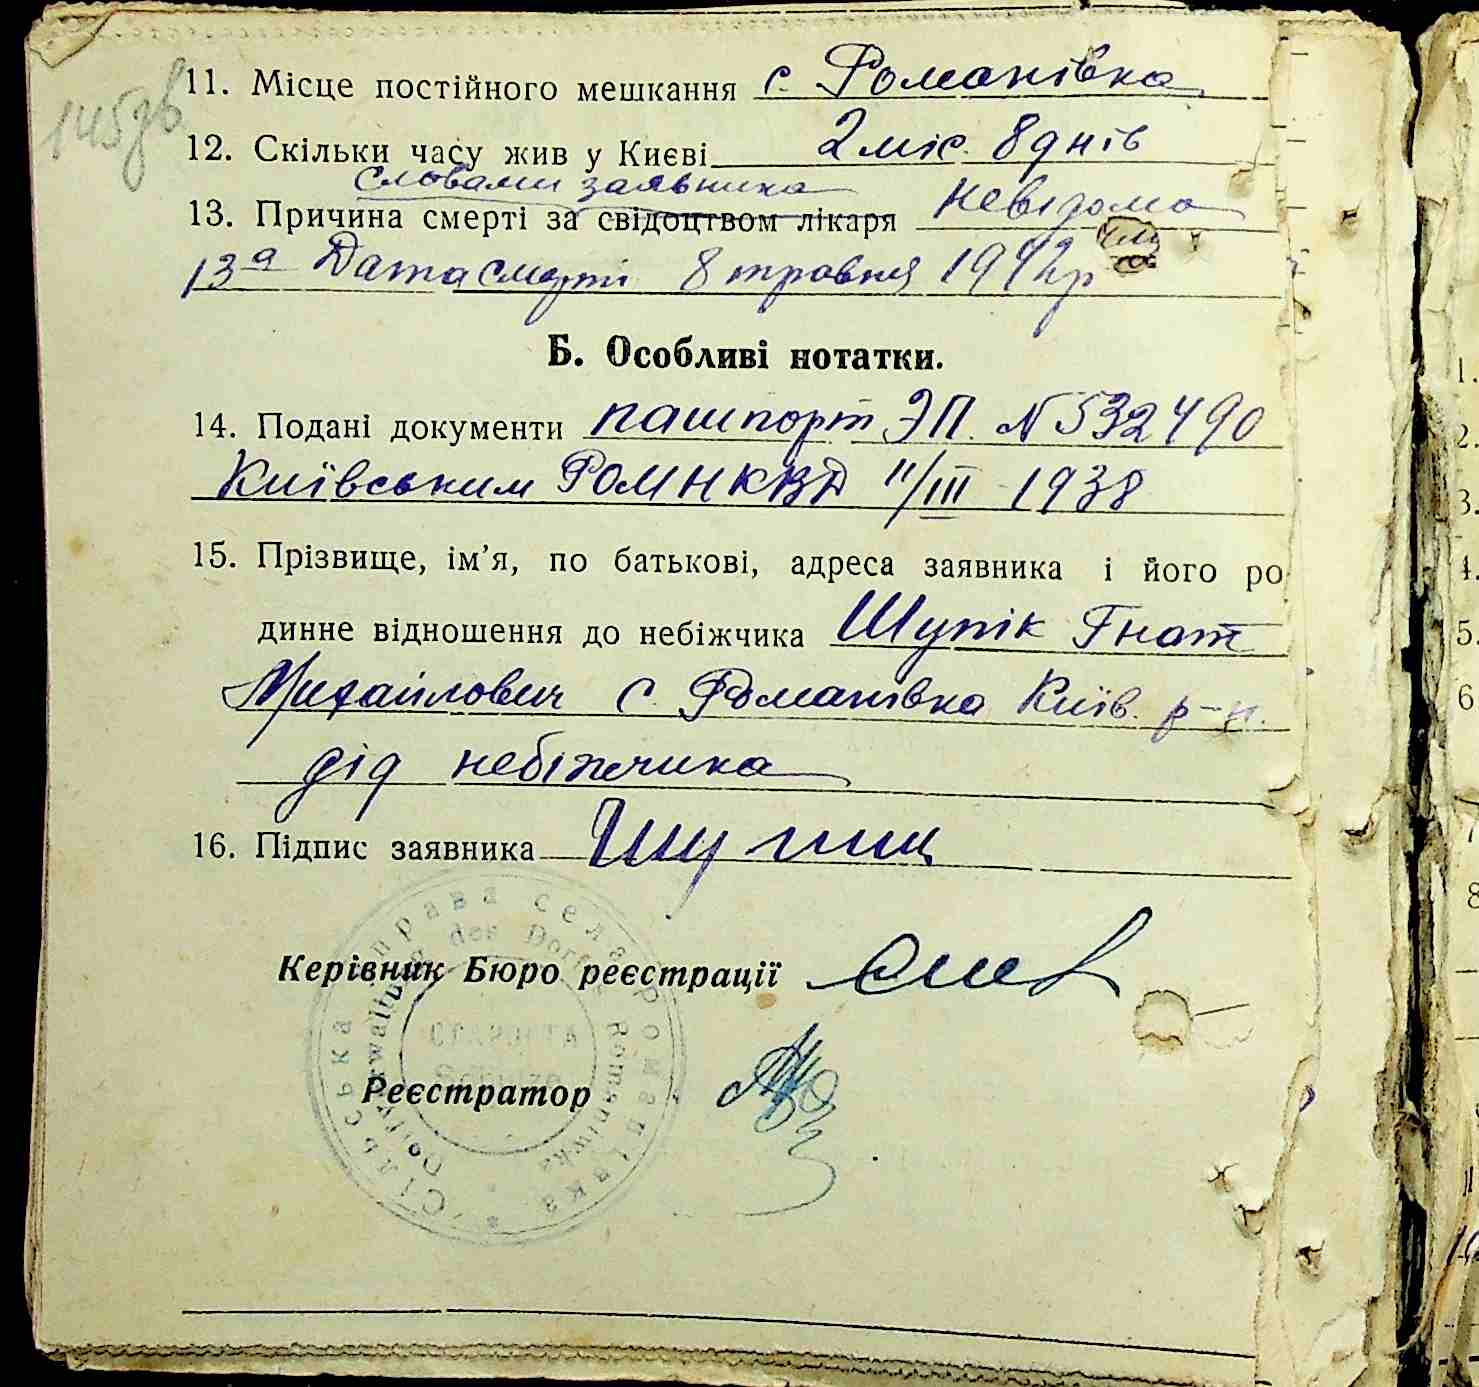 145зв
11. Місце постійного мешкання с. Романівка
12. Скільки часу жив у Києві 2 міс. 8 днів
словами заявника
13. Причина смерті за свідоцтвом лікаря невідома
13а Дата смерті 8 травня 1942р
Б. Особливі нотатки.
14. Подані документи пашпорт ЭП. N 532490
Київським РОМНКВД 11/III 1938
15. Прізвище, ім'я, по батькові, адреса заявника і його ро
динне відношення до небіжчика Шупік Гнат
Михайлович с. Романівка Київ. р-н.
дід небіжчика
16. Підпис заявника Шупик
Керівник Бюро реєстрації
Реєстратор
Сільська управа села Романівка
Dorfverwaltung des Dorfes Romaniwka
СТАРОСТА